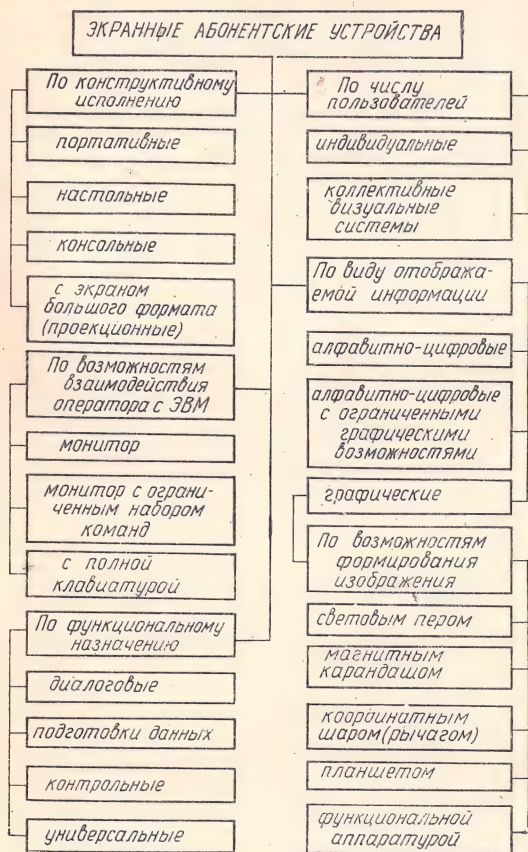 ЭКРАННЫЕ АБОНЕНТСКИЕ УСТРОЙСТВА
По конструктивному
исполнению
портативные
настольные
консольные
с экраном
большого формата
(проекционные)
По возможностям
взаимодействия
оператора с ЭВМ
монитор
монитор с ограни-
ченным набором
команд
с полной
клавиатурой
По функциональному
назначению
диалоговые
подготовки данных
контрольные
универсальные
По числу
пользователей
индивидуальные
коллективные
визуальные
системы
По виду отобража-
емой информации
алфавитно-цифровые
алфавитно-цифровые
с ограниченными
графическими
возможностями
графические
По возможностям
формирования
изображения
световым пером
магнитным
карандашом
координатным
шаром (рычагом)
планшетом
функциональной
аппаратурой